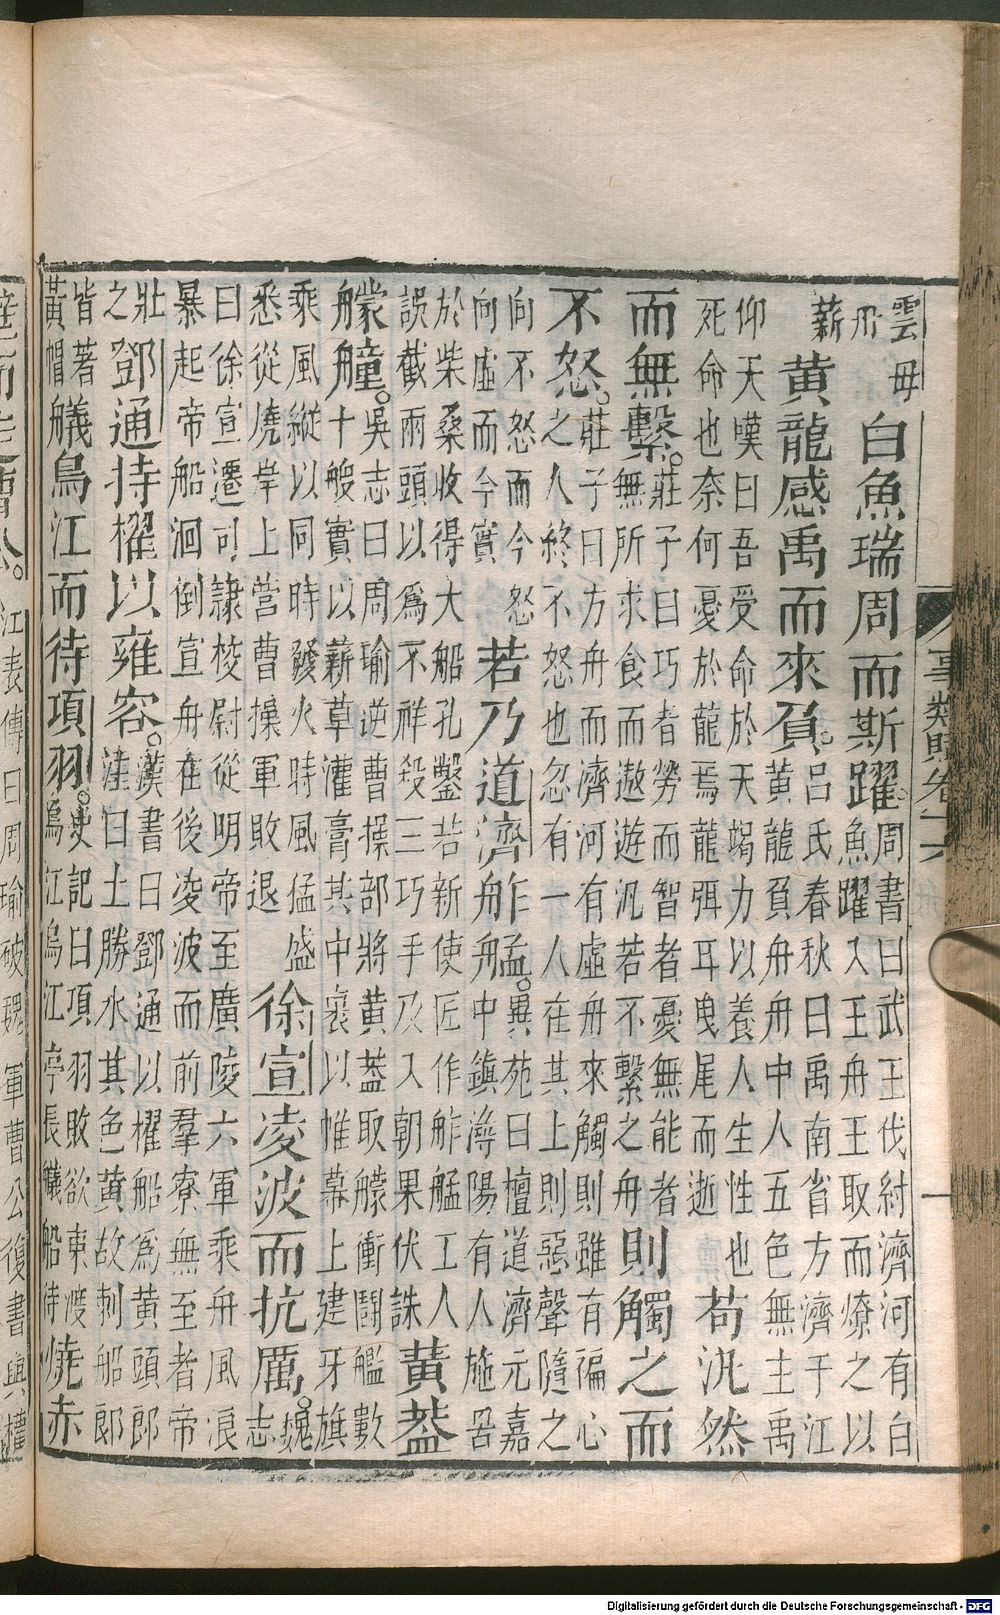 雲母
舟
白魚瑞周而斯躍
周書曰武王伐紂濟河有白
魚躍入王舟王取而燎之以
薪
黃龍感禹而來負
呂氏春秋曰禹南省方濟于江
黃龍負舟舟中人五色無主禹
仰天嘆曰吾受命於天竭力以養人生性也
死命也奈何憂於龍焉龍弭耳曳尾而逝
苟汎然
而無繫
莊子曰巧者勞而智者憂無能者
無所求食而遨遊汎若不繫之舟
則觸之而
不怒
莊子曰方舟而濟河有虛舟來觸則雖有褊心
之人終不怒也忽有一人在其上則惡聲隨之
向不怒而今怒
向虛而今實
若乃道濟舴艋
異苑曰檀道濟元嘉
中鎮潯陽有人施罟
於柴桑收得大船孔鑿若新使匠作舴艋工人
誤截兩頭以為不祥殺三巧手及入朝果伏誅
黃葢
艨艟
吳志曰周瑜逆曹操部將黃葢取艨衝鬪艦數
十艘實以薪草灌膏其中裹以帷幕上建牙旗
乘風縱以同時發火時風猛盛
悉從燒岸上營曹操軍敗退
徐宣凌波而抗厲
魏
志
曰徐宣遷司隸校尉從明帝至廣陵六軍乘舟風浪
暴起帝船洄倒宣舟在後凌波而前羣寮無至者帝
壯
之
鄧通持櫂以雍容
漢書曰鄧通以櫂船為黃頭郎
注曰土勝水其色黃故刺船郎
皆著
黃帽
艤烏江而待項羽
史記曰項羽敗欲東渡
烏江烏江亭長艤船待
燒赤
事類賦卷十六
一
江表傳曰周瑜破魏軍曹公復書與權